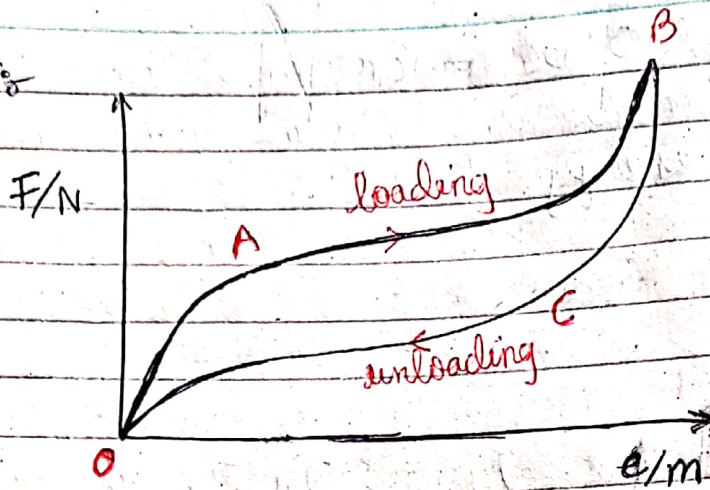 B
F/N
loading
A
C
unloading
O
e/m